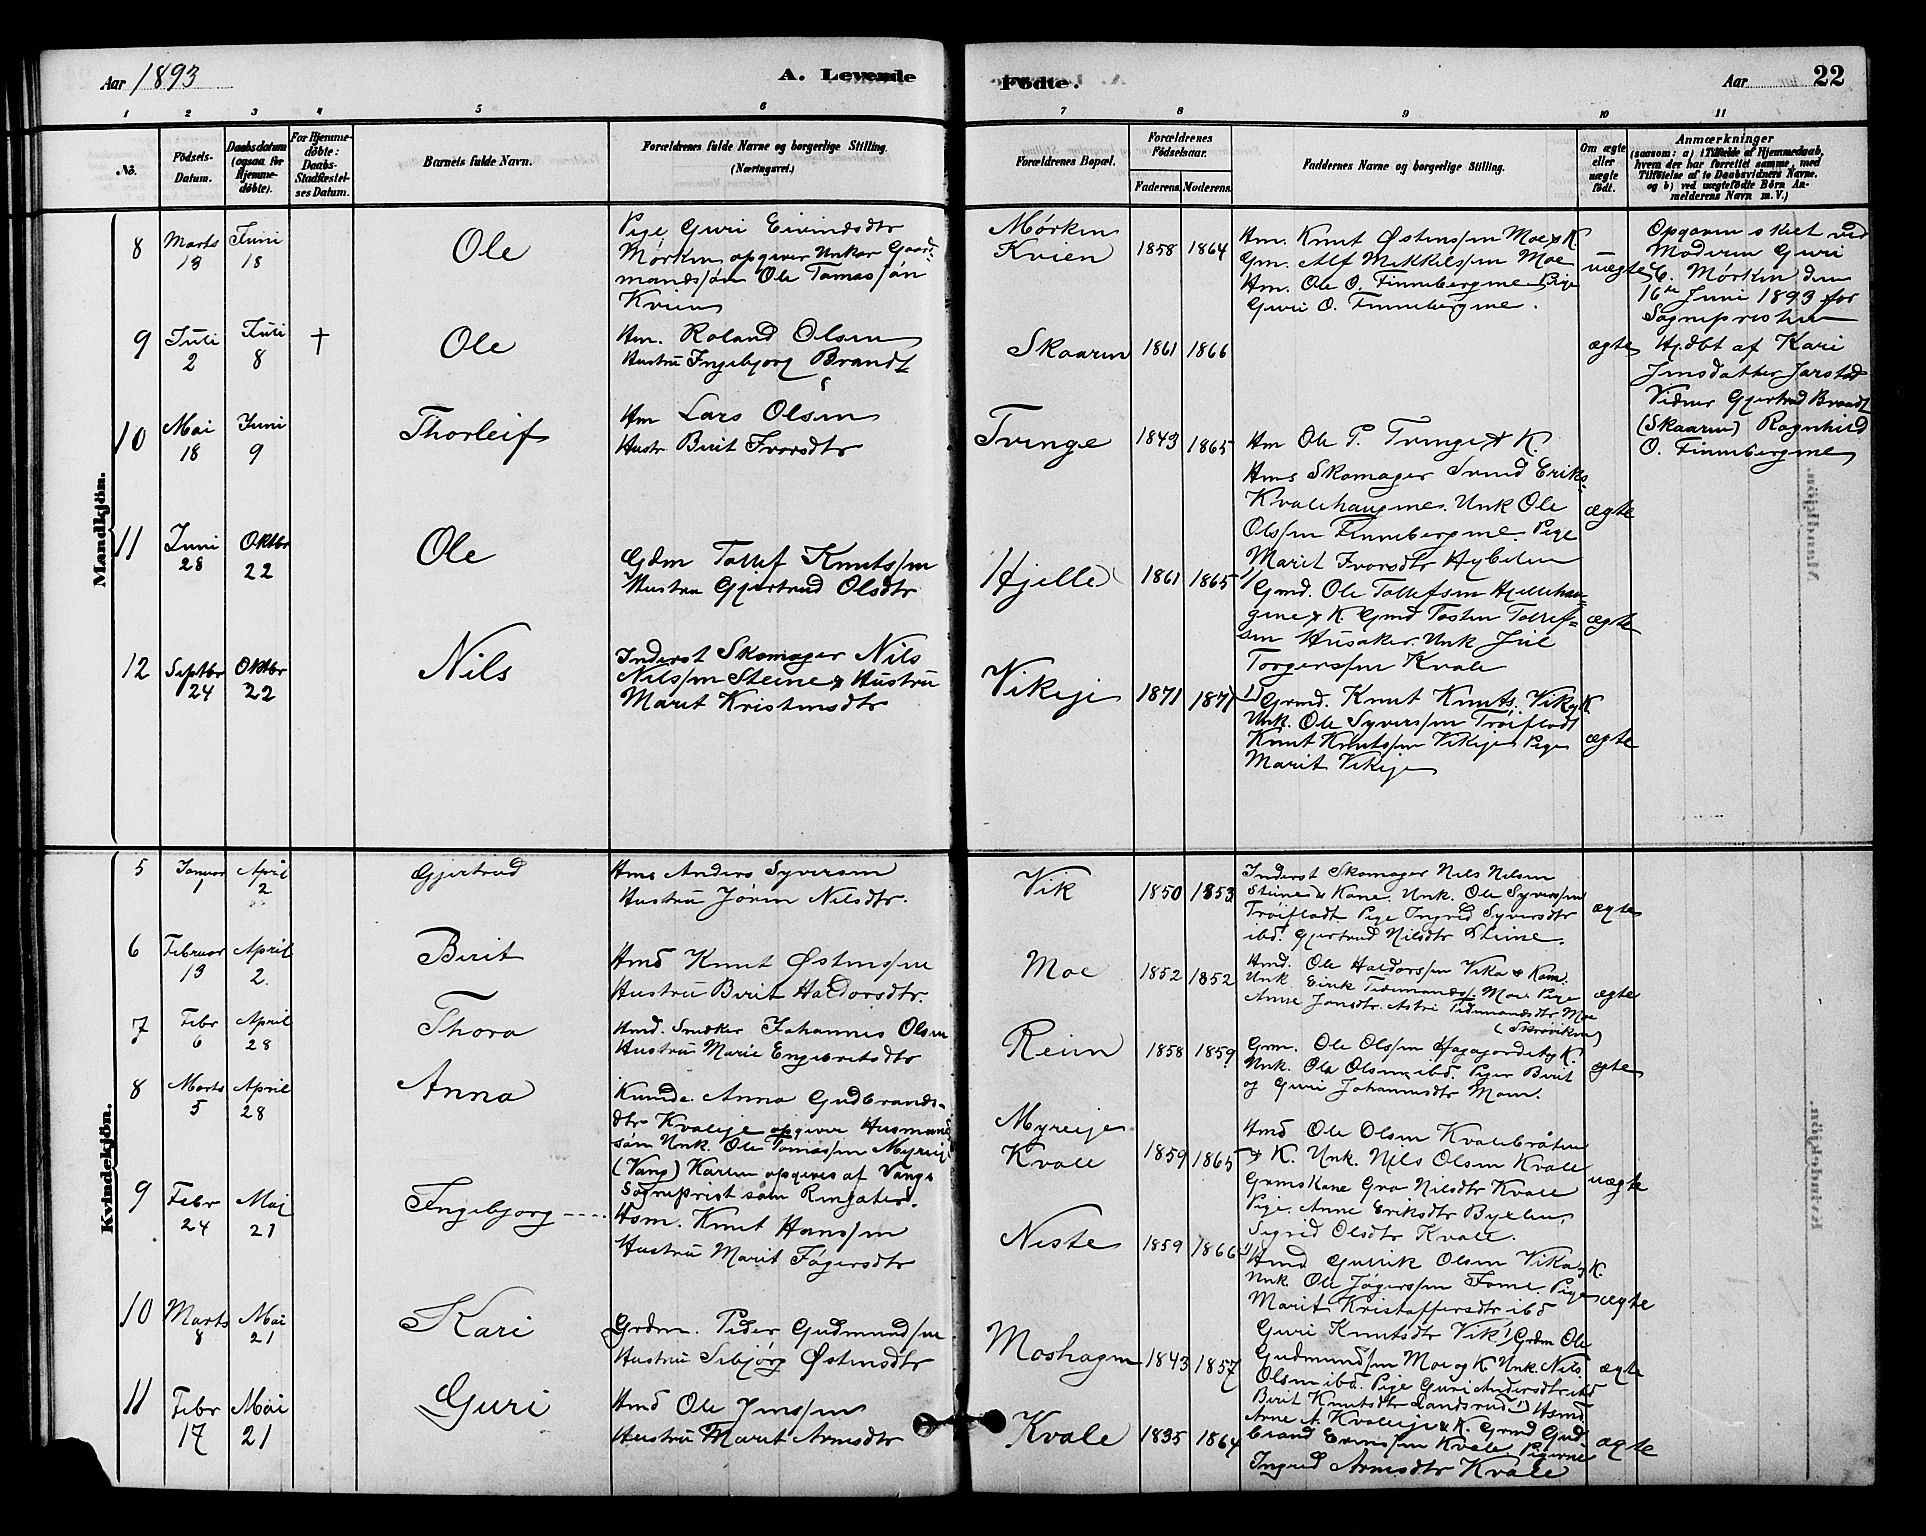 Aar 1893
A. Levende
Födte.
Aar 22
1 2 3 4 5 6 7 8 9 10 11
No.
Födsels-Datum.
Daabsdatum (ogsaa for Hjemmedöbte).
For Hjemmedöbte: Daabs-Stadfæstelses Datum.
Barnets fulde Navn.
Forældrenes fulde Navne og borgerlige Stilling.
(Næringsvei.)
Forældrenes Bopæl.
Forældrenes Födselsaar.
Faderens. Moderens.
Faddernes Navne og borgerlige Stilling.
Om ægte eller uægte födt.
Anmærkninger
(saasom: a) i Tilfælde af Hjemmedaab, hvem der har forrettet samme, med Tilföielse af to Daabsvidners Navne. og b) ved uægtefödte Börn Anmelderens Navn m. V.)
Mandkjön.
8 Marts 13 Juni 18 Ole
Pige Guri Eivindsdtr
Mørken opgiver Unkar Gaard-
mandssøn Ole Tomassøn
Kvien
Mørken
Kvien
1858 1864
Hm. Knut Østenssen Moe & K.
Gm. Alf Mikkelssen Moe
Hm. Ole O. Finnebergene Pige
Guri O. Finnebergene.
uægte
Opgaven skeet ved
Moderen Guri
E. Mørken den
16de Juni 1893 for
Sognepresten
9 Juli 2 Juli 8 † Ole
Hm. Roland Olsen
Hustru Ingebjorg Brandt
Skaaren 1861 1866 ægte
Hj.døbt af Kari
Jensdatter Jarstad
Vidner Gjertrud Brandt
(Skaaren) Ragnhild
O. Finnebergene
10 Mai 18 Juni 9 Thorleif
Hm Lars Olsen
Hustr Birit Ivorsdtr
Tvinge 1843 1865
Hm Ole P. Tvinge & K.
Hms Skomager Svend Eriks-
Kvalehaugene. Unk Ole
Olssen Finnebergene. Pige
Marit Ivorsdtr Hybelen
ægte
11 Juni 28 Oktbr 22 Ole
Gdm Tollef Knutssen
Hustru Gjertrud Olsdtr
Hjelle 1861 1865
Gmd. Ole Tollefsen Hjellehau-
gene & K. Gmd Tosten Tollef-
sen Husaker. Unk Jul
Torgerssen Kvale
ægte
12 Septbr 24 Oktbr 22 Nils
Inderst Skomager Nils
Nilssen Steine & Hustru
Marit Kristensdtr
Vikeje 1871 1871
1) Grmd. Knut Knuts. Vik og K.
Unk. Ole Syverssen Trøifladt
Knut Knutssen Vikeje Pige
Marit Vikeje
ægte
Kvindekjön.
5 Januar 1 April 2 Gjertrud
Hms Anders Syversen
Hustru Jøren Nilsdtr.
Vik 1850 1853
Inderst Skomager Nils Nilsen
Steine & Kone. Unk. Ole Syverssen
Trøifladt Pige Ingrid Syversdtr
ibd. Gjertrud Nilsdtr Steine.
ægte
6 Februar 13 April 2. Birit
Hmd Knut Østenssen
Hustru Birit Haldorsdtr.
Moe 1852 1852
Hmd. Ole Haldorssen Vika & Kone.
Unk Eirik Tidemandss. Moe Pige
Anne Jonsdtr. Astri Tidemandsdtr Moe
ægte
7 Febr 6 April 28 Thora
Hmd. Snedker Johannes Olsen
Hustru Marie Engebretsdtr
Reien 1858 1859
Grm. Ole Olssen Hagajordet og K.
Unk. Ole Olsen ibd. Piger Birit
og Guri Johannesdtr Moen.
ægte
8 Marts 5 April 28 Anna
Kvinde. Anna Gudbrands-
dtr Kvaleje opgiver Husmands-
søn Unk. Ole Tomassen Myreeje
(Vang) Karlen opgives af Vangs
Sogneprest som Ringatert.
Myreeje
Kvale
1859 1865
Hmd Ole Olsen Kvalebråten
& K. Unk. Nils Olsen Kvale
Grmskone Gro Nilsdtr Kvale
Pige. Anne Eriksdtr Byelien.
Sigrid Olsdtr Kvale.
uægte
9 Febr 24 Mai 21 Ingebjorg
Hsm. Knut Hanssen
Hustru Marit Tøgersdtr
Neste 1859 1866
1) Hmd Gulrik Olsen Vika og K.
Unk. Ole Tøgerssen Fome. Pige
Marit Kristaffersdtr ibd
Guri Knutsdtr Vik
ægte
10 Marts 8 Mai 21 Kari
Grdm. Peder Gudmundssen
Hustru Sebjørg Østensdtr
Moshagen 1843 1857
1) Grdm Ole
Gudmundssen Moe og K. Unk. Nils
Olsen ibd. Pige Guri Andersdtr ibd
Birit Knutsdtr Landsrud
ægte
11 Febr 17 Mai 21 Guri
Hmd Ole Jenssen
Hustru Marit Arnesdtr
Kvale 1835 1864
1) Hsmd
Arne A. Kvaleeje & K. Grmd Gud-
brand Evenssen Kvale. Pigerne
Ingrid Arnesdtr Kvale
ægte